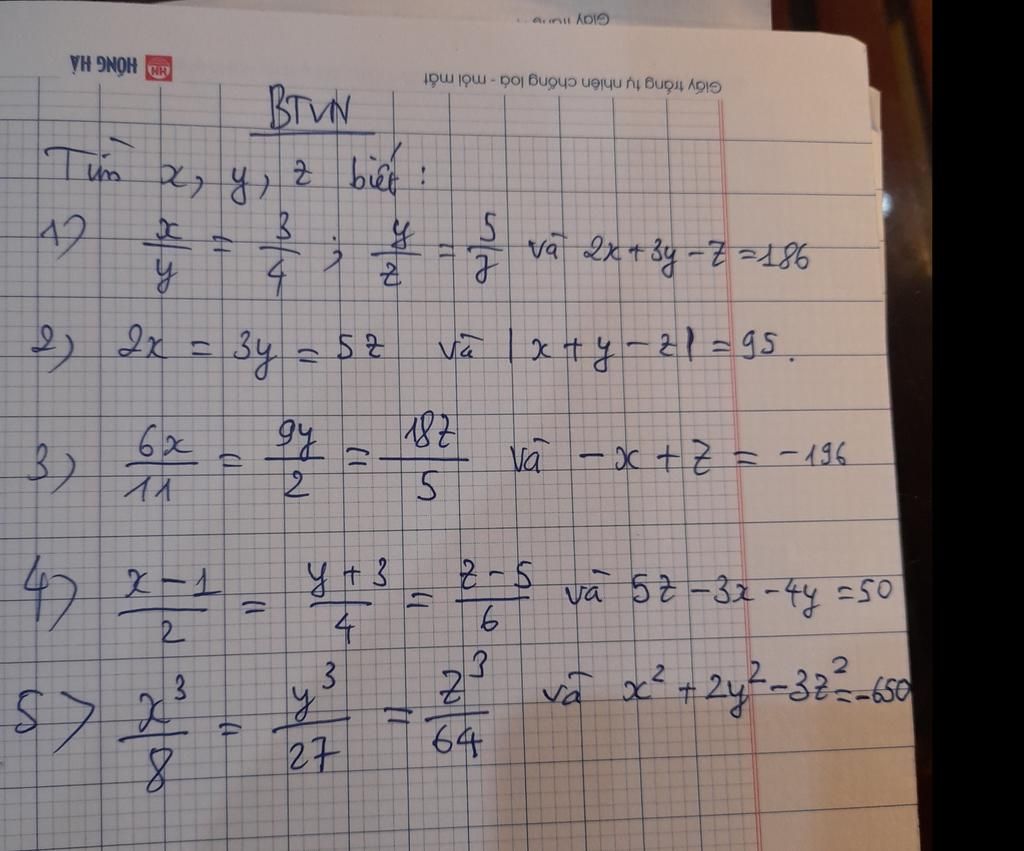 Giấy trắng tự nhiên chống loá - mỏi mắt
HỒNG HÀ
BTVN
Tìm x, y, z biết :
1) x/y = 3/4 ; y/z = 5/7 và 2x + 3y - z = 186
2) 2x = 3y = 5z và | x + y - z | = 95.
3) 6x/11 = 9y/2 = 18z/5 và - x + z = -196
4) x - 1/2 = y + 3/4 = z - 5/6 và 5z - 3x - 4y = 50
5) x³/8 = y³/27 = z³/64 và x² + 2y² - 3z² = -650